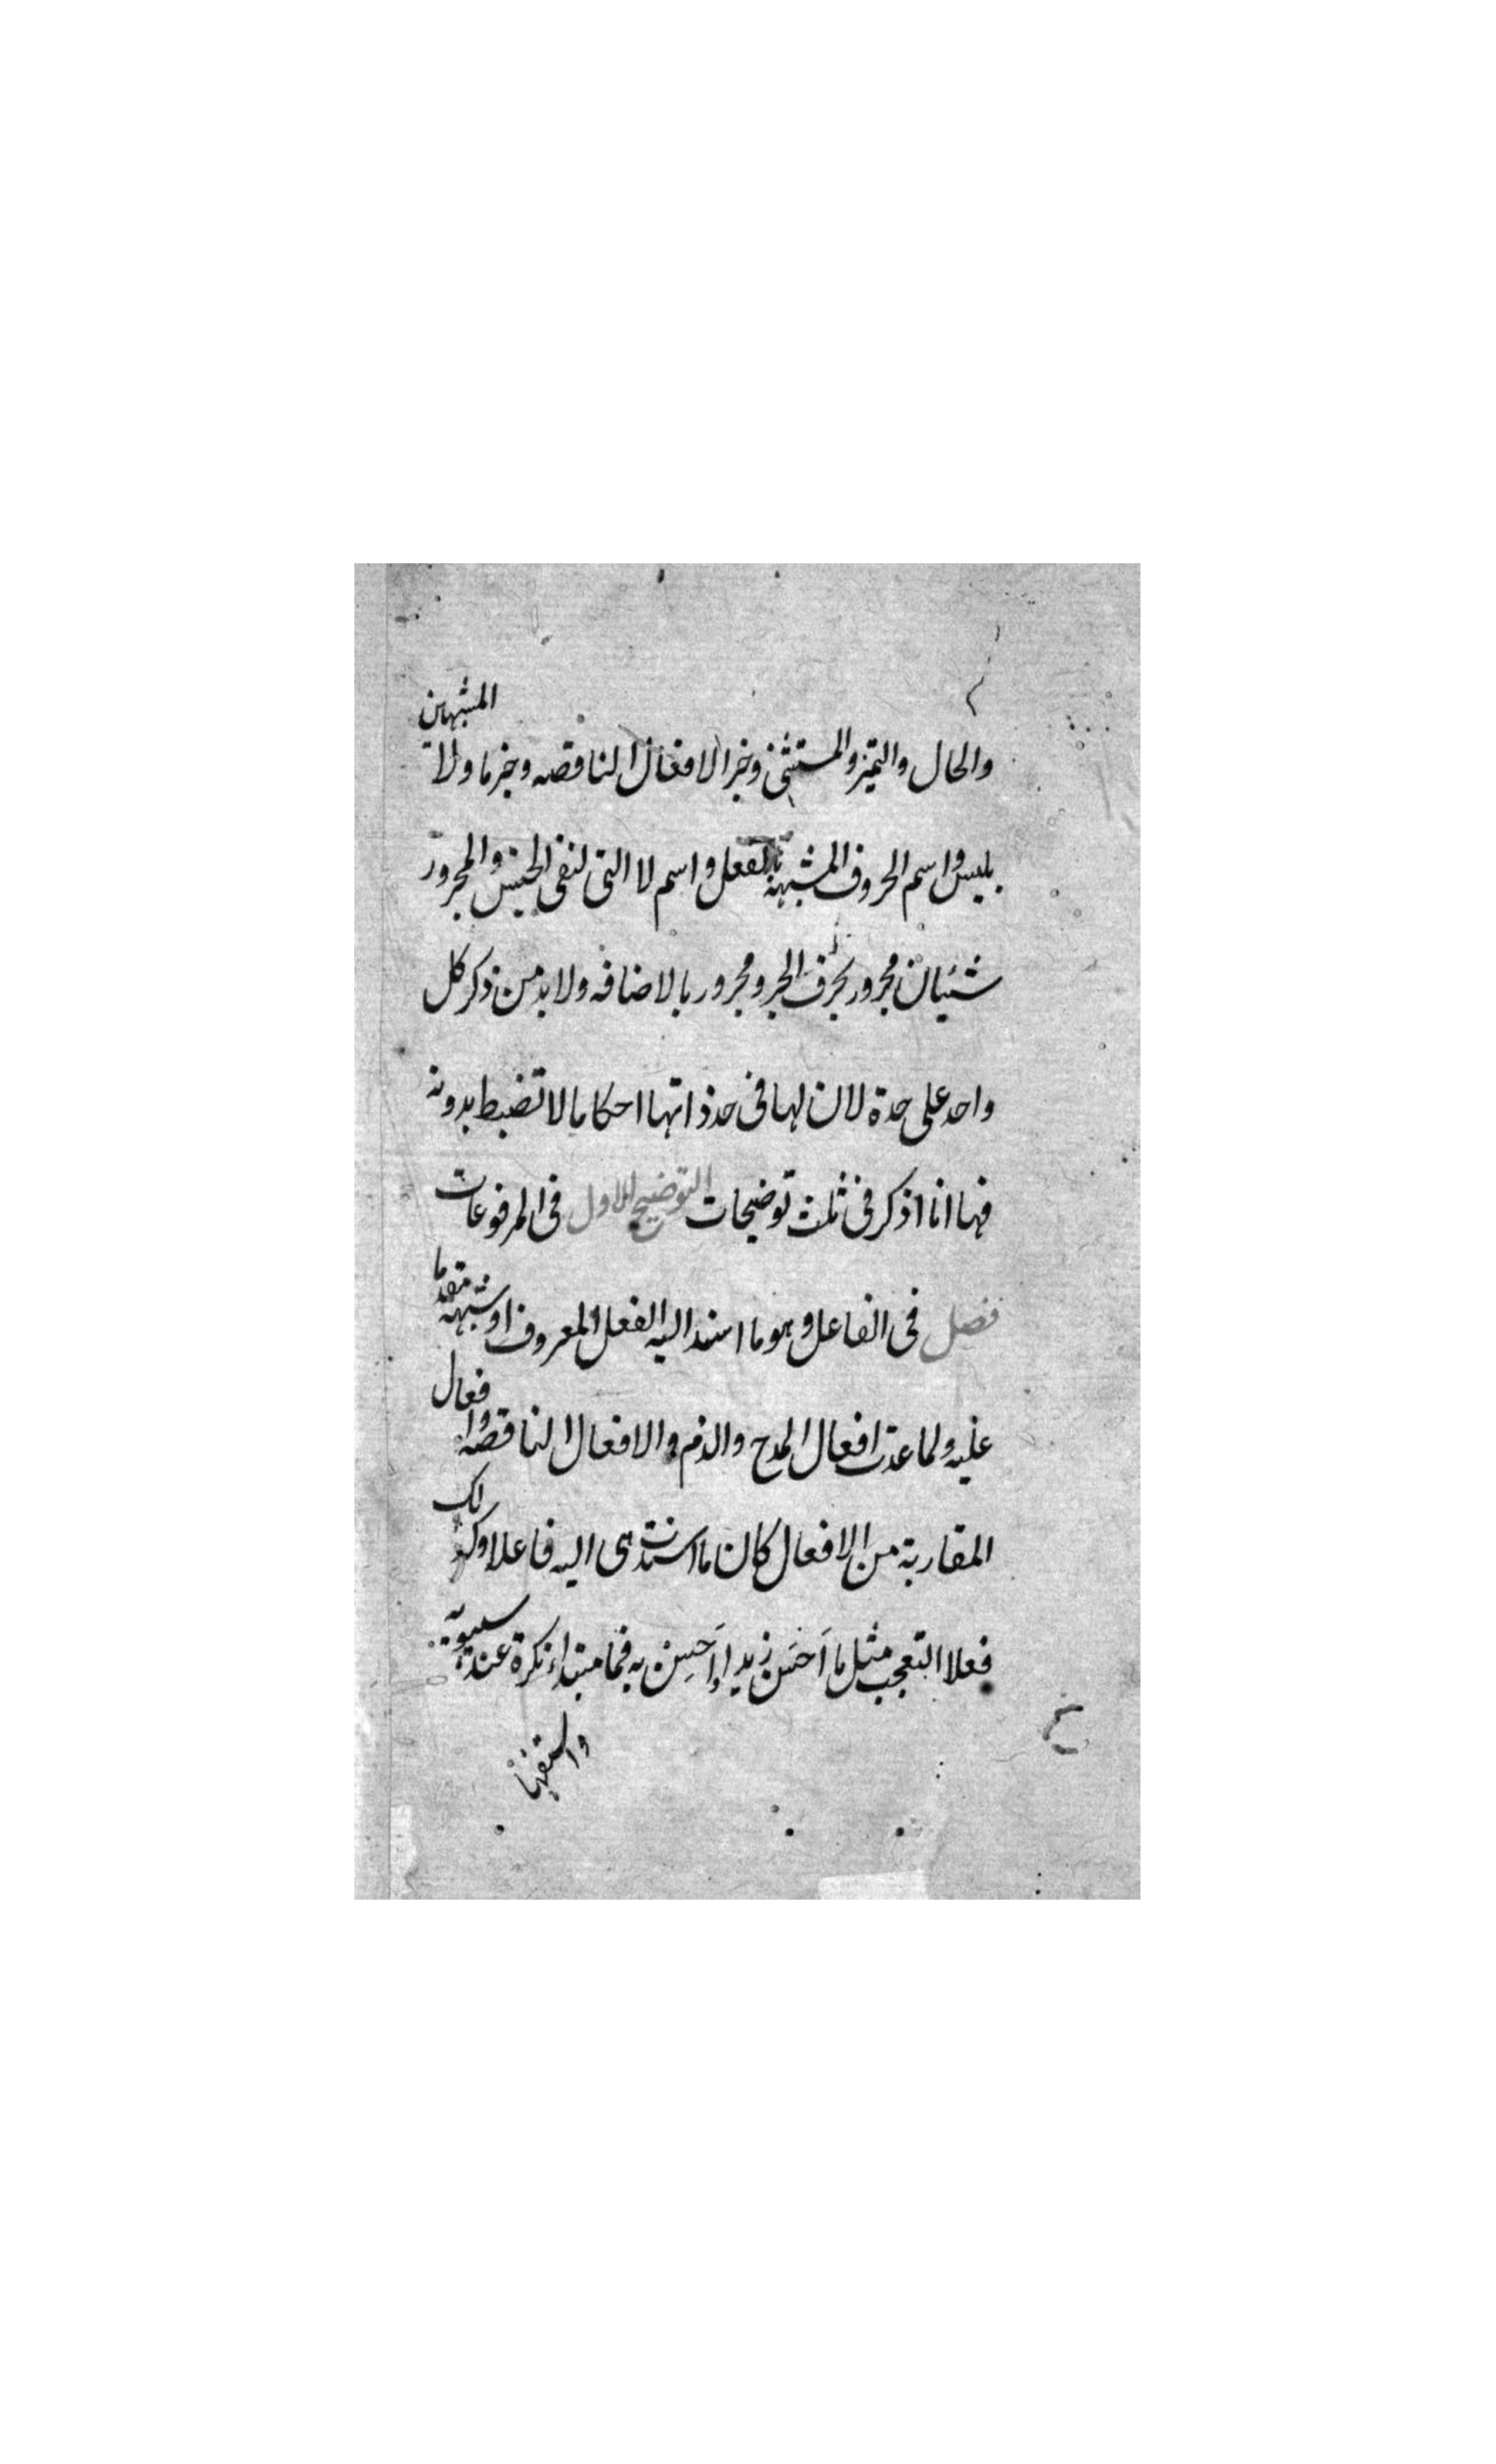 والحال والتميز والمستثنى وخبر الافعال الناقصه وخبر ما ولا المشبهين
بليس واسم الحروف المشبهة بالفعل واسم لا التى لنفى الجنس والمجرور
شيئان مجرور بحرف الجر ومجرور بالاضافه ولا بد من ذكر كل
واحد على حدة لان لها فى حد ذاتها احكاما لا تضبط بدونه
فها انا اذكر فى ثلث توضيحات التوضيح الاول فى المرفوعات
فصل فى الفاعل وهو ما اسند اليه الفعل المعروف او شبهه مقدما
عليه ولما عدت افعال المدح والذم والافعال الناقصه وافعال
المقاربة من الافعال كان ما اسندت هى اليه فاعلا وكذلك
فعلا التعجب مثل ما اَحسَن زيدا واَحسِن به فما مبتداء نكرة عند سيبويه